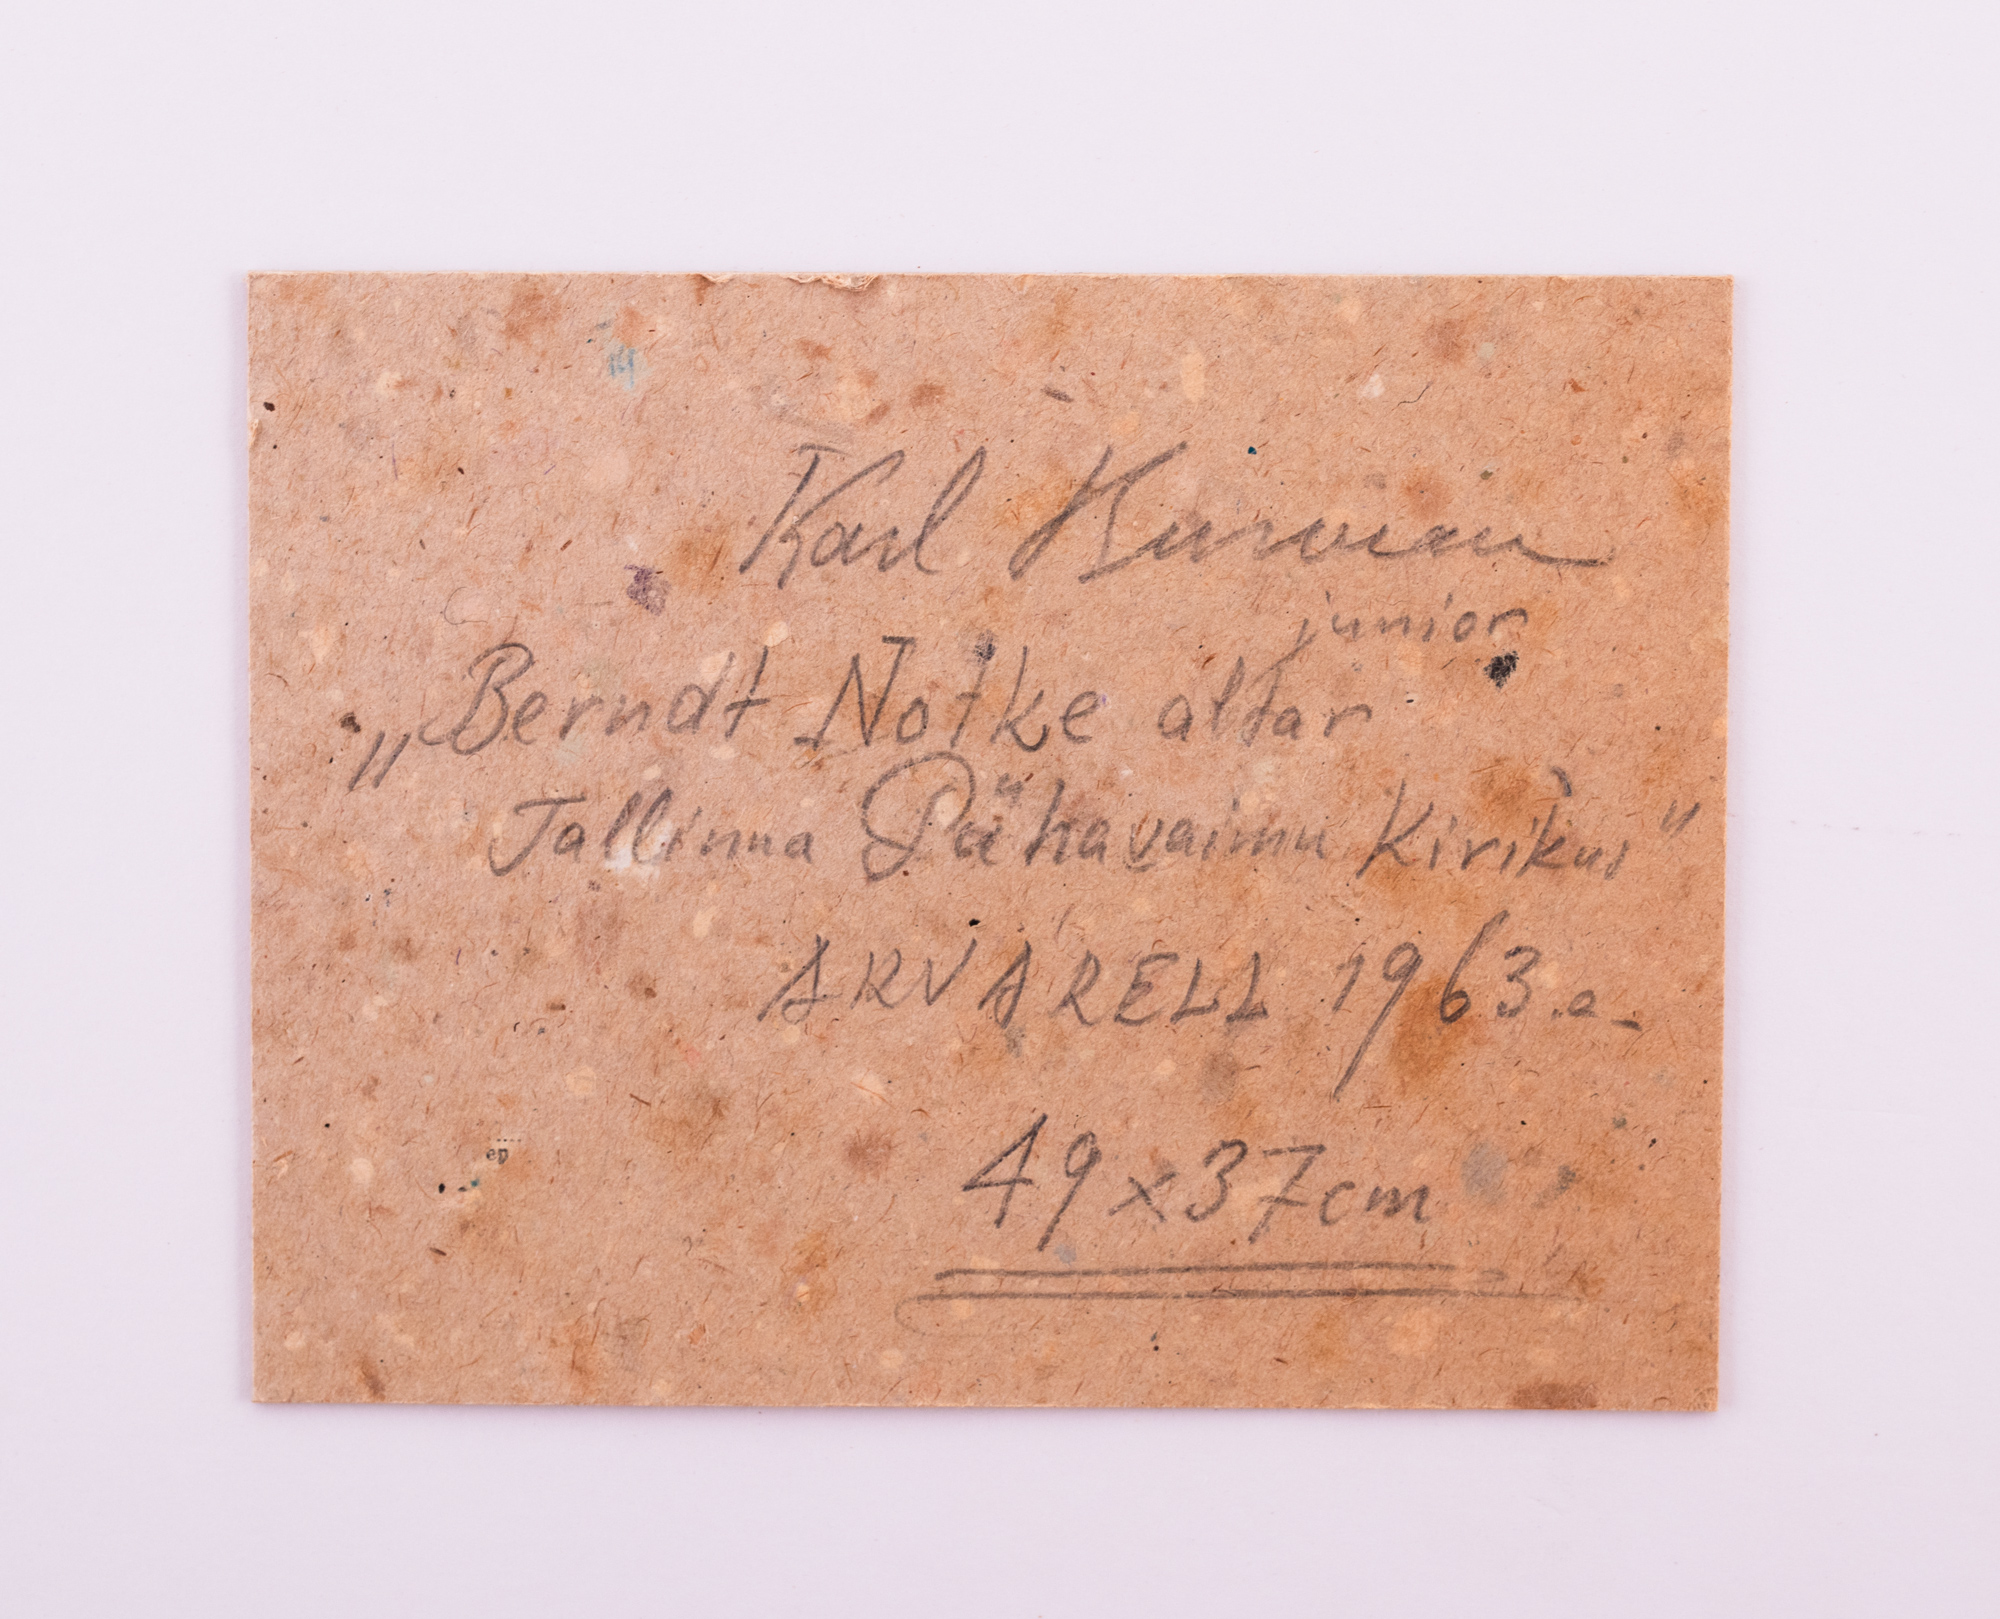 Karl Kurman
junior
„Berndt Notke altar
Tallinna Pühavaimu Kirikus"
AKVARELL 1963.a.
49x37cm